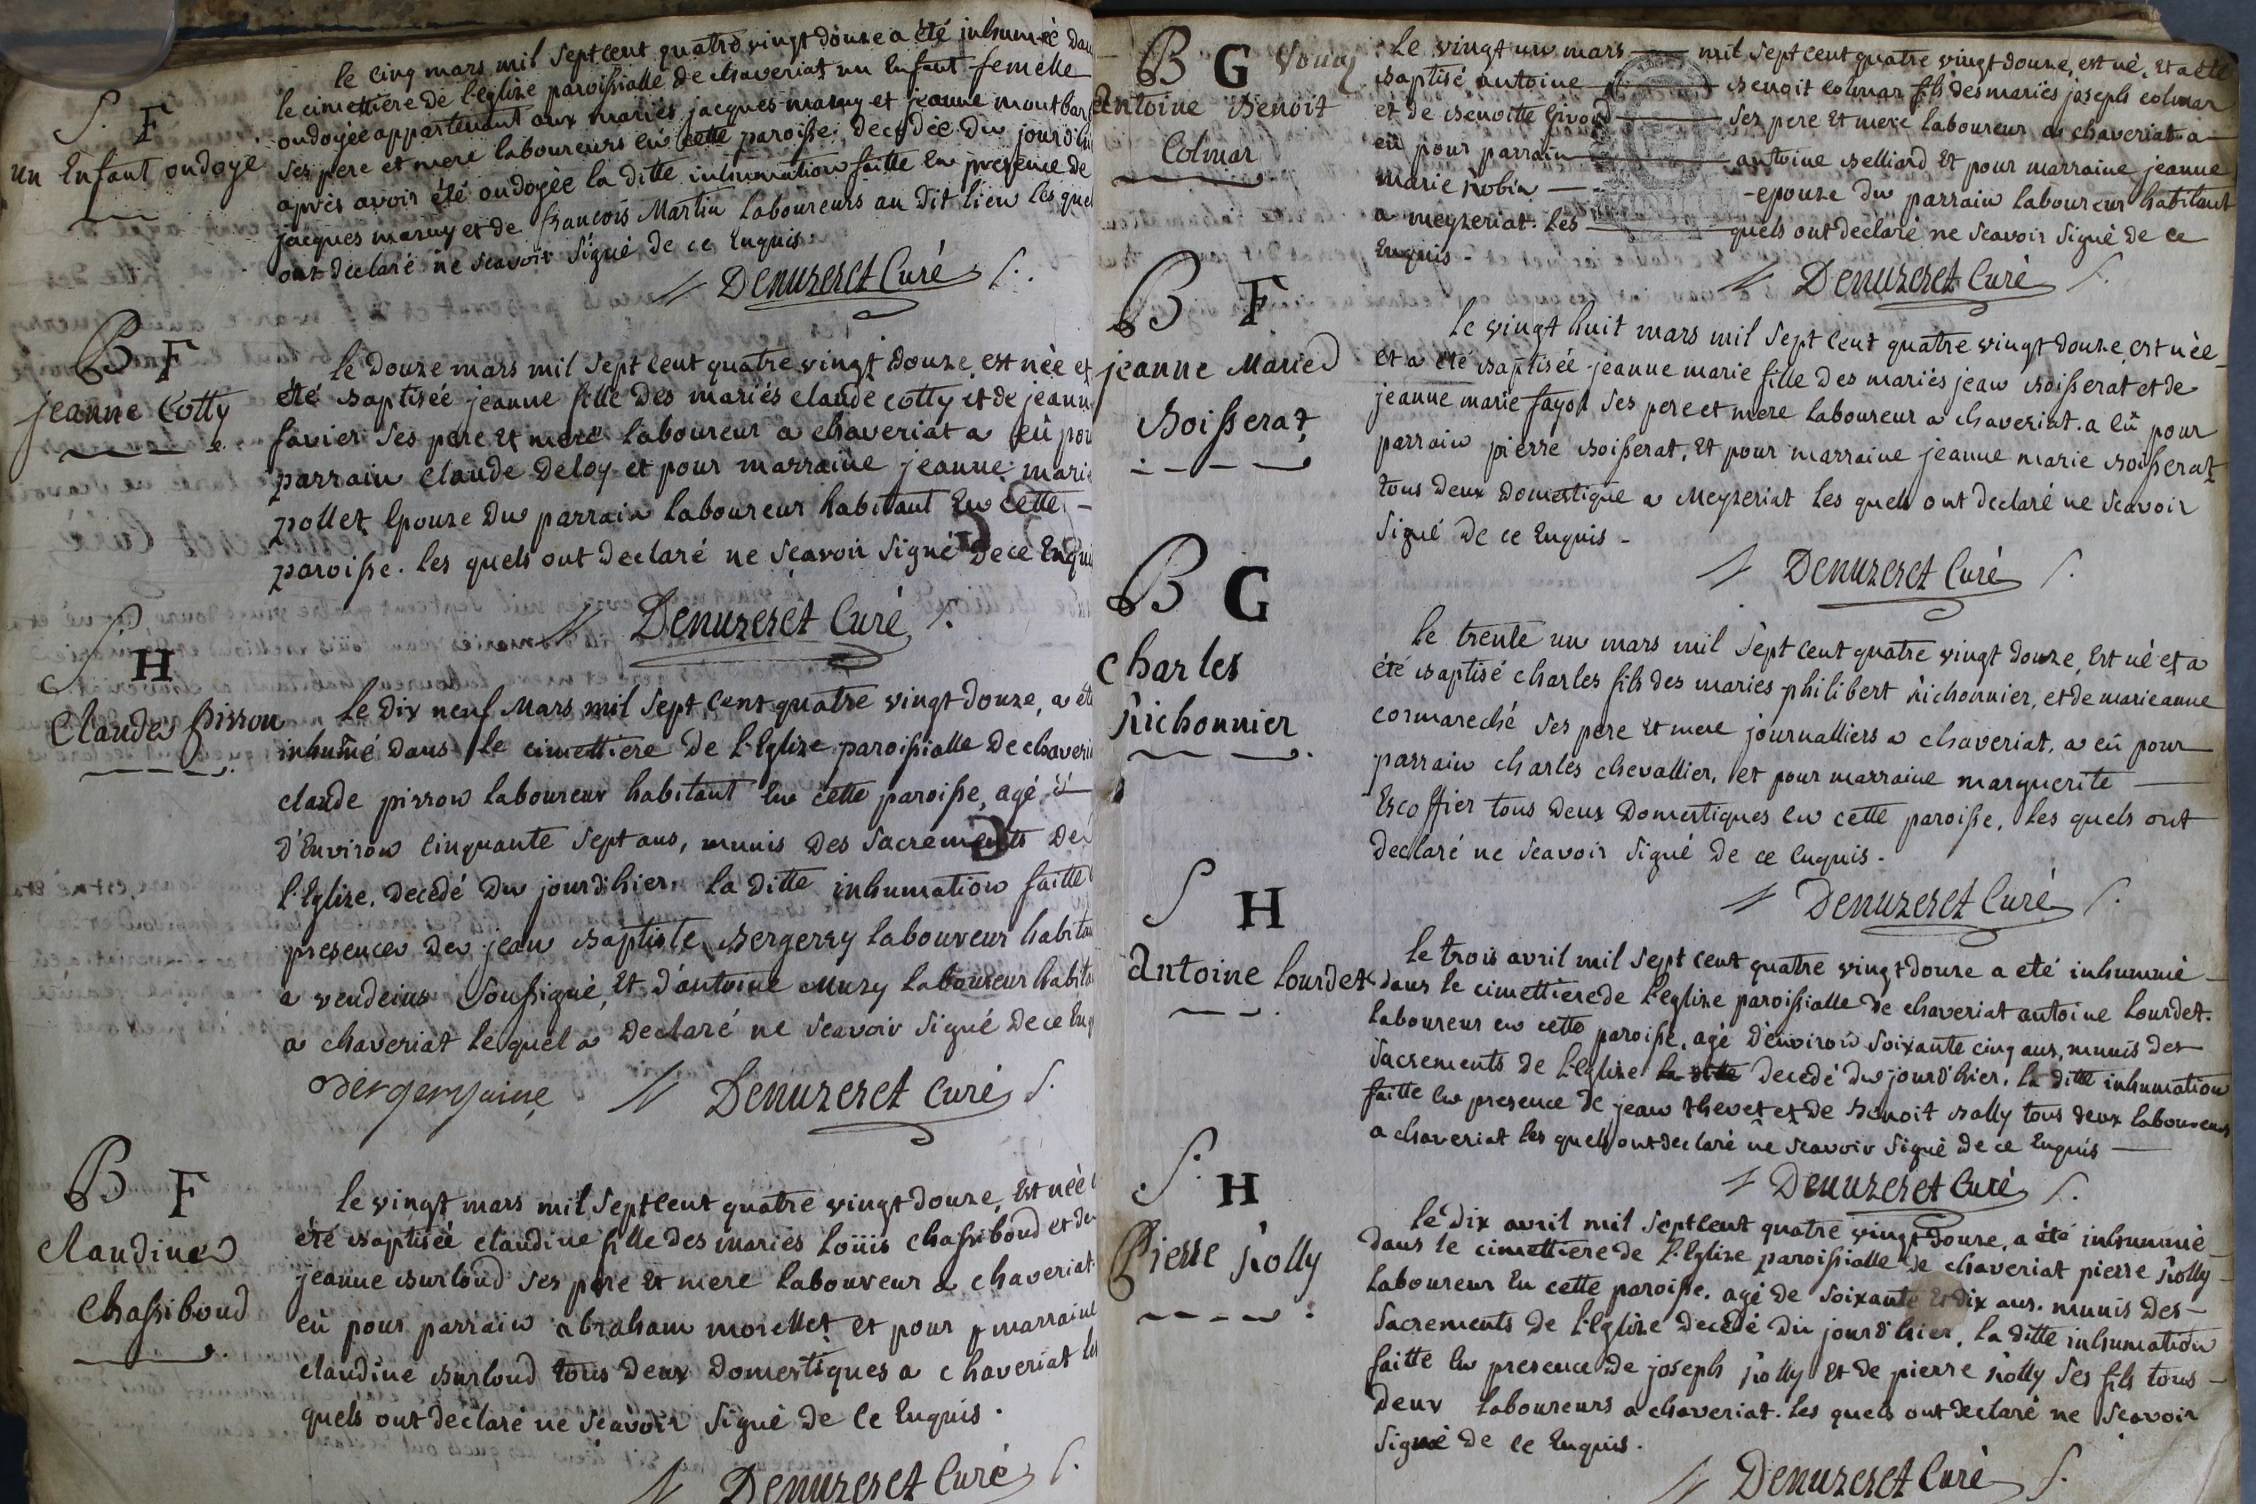 S. F
un Enfant ondoyé
le cinq mars mil sept cent quatre vingt douze a été inhumée dans
le cimettiere de l'eglize paroissialle de chaveriat un Enfant femelle
ondoyée appartenant aux mariés jacques maruy et jeanne montbar
ses pere et mere laboureurs en cette paroisse, decedée du jourd'hui
après avoir été ondoyée la ditte inhumation faitte en presence de
jacques maruy et de francois Martin laboureurs au dit lieu les quels
ont declaré ne scavoir signé de ce Enquis.
Denuzeret Curé
B F
jeanne Cotty
le douze mars mil sept cent quatre vingt douze, est née et
été baptisée jeanne fille des mariés claude cotty et de jeanne
favier ses pere et mere laboureur a chaveriat a eû pour
parrain claude Deloy et pour marraine jeanne marie
pollet Epouze du parrain laboureur habitant en cette
paroisse. les quels ont declaré ne scavoir signé de ce Enquis
Denuzeret Curé
S. H
Claude pirron
le dix neuf Mars mil sept cent quatre vingt douze, a été
inhumé dans le cimettiere de l'Eglize paroissialle de chaveriat
claude pirron laboureur habitant en cette paroisse, agé
d'Environ cinquante sept ans, munis des sacrements de
l'Eglize. decedé du jourd'hier. la ditte inhumation faitte
presence de jean baptiste Bergerey laboureur habitant
a vendeins soussigné, et d'antoine Mury laboureur habitant
a chaveriat lequel a declaré ne scavoir signé de ce Enquis
Denuzeret Curé
B F
claudine
chassiboud
le vingt mars mil sept cent quatre vingt douze, est née
été baptisée claudine fille des mariés loüis chassiboud et de
jeanne burloud ses pere et mere laboureur a chaveriat
eû pour parrain abraham morellet et pour marraine
claudine burloud tous deux domestiques a chaveriat les
quels ont declaré ne scavoir signé de ce Enquis.
Denuzeret Curé
B G
antoine Benoit
Colmar
le vingt un mars mil sept cent quatre vingt douze, est né, et a été
baptisé, antoine Benoit colmar fils des mariés joseph colmar
et de Benoitte Givord ses pere et mere laboureur a chaveriat a
eû pour parrain antoine belliard et pour marraine jeanne
marie Robin epouze du parrain laboureur habitant
a meyzeriat. les quels ont declaré ne scavoir signé de ce
Enquis.
Denuzeret Curé
B F
jeanne Marie
Boisserat
le vingt huit mars mil sept cent quatre vingt douze, est née
et a été baptisée jeanne marie fille des mariés jean boisserat et de
jeanne marie fayol ses pere et mere laboureur a chaveriat. a eû pour
parrain pierre boisserat, et pour marraine jeanne marie boisserat
tous deux domestique a Meyzeriat les quels ont declaré ne scavoir
signé de ce Enquis
Denuzeret Curé
B G
charles
Richonnier
le trente un mars mil sept cent quatre vingt douze, est né et a
été baptisé charles fils des mariés philibert Richonnier, et de marieanne
cormareché ses pere et mere journalliers a chaveriat, a eû pour
parrain charles chevallier, et pour marraine marguerite
Escoffier tous deux domestiques en cette paroisse, les quels ont
declaré ne scavoir signé de ce Enquis.
Denuzeret Curé
S H
antoine lourdet
le trois avril mil sept cent quatre vingt douze a eté inhummé
dans le cimettiere de l'eglize paroissialle de chaveriat antoine lourdet.
laboureur en cette paroisse, agé d'environ soixante cinq ans, munis des
sacrements de l'Eglize la ditte decedé du jourd'hier. la ditte inhumation
faitte en presence de jean thevet et de Benoit bally tous deux laboureurs
a chaveriat les quels ont declaré ne scavoir signé de ce Enquis
Denuzeret Curé
S. H
Pierre Rolly
le dix avril mil sept cent quatre vingt douze, a été inhummé
dans le cimettiere de l'Eglize paroissialle de chaveriat pierre Rolly
laboureur en cette paroisse. agé de soixante et dix ans. munis des
sacrements de l'Eglize decedé du jourd'hier, la ditte inhumation
faitte en presence de joseph Rolly et de pierre Rolly ses fils tous
deux laboureurs a chaveriat. les quels ont declaré ne scavoir
signé de ce Enquis.
Denuzeret Curé